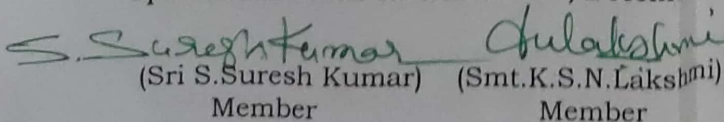 S. Suresh Kumar
(Sri S.Suresh Kumar) (Smt.K.S.N.Lakshmi)
Member Member